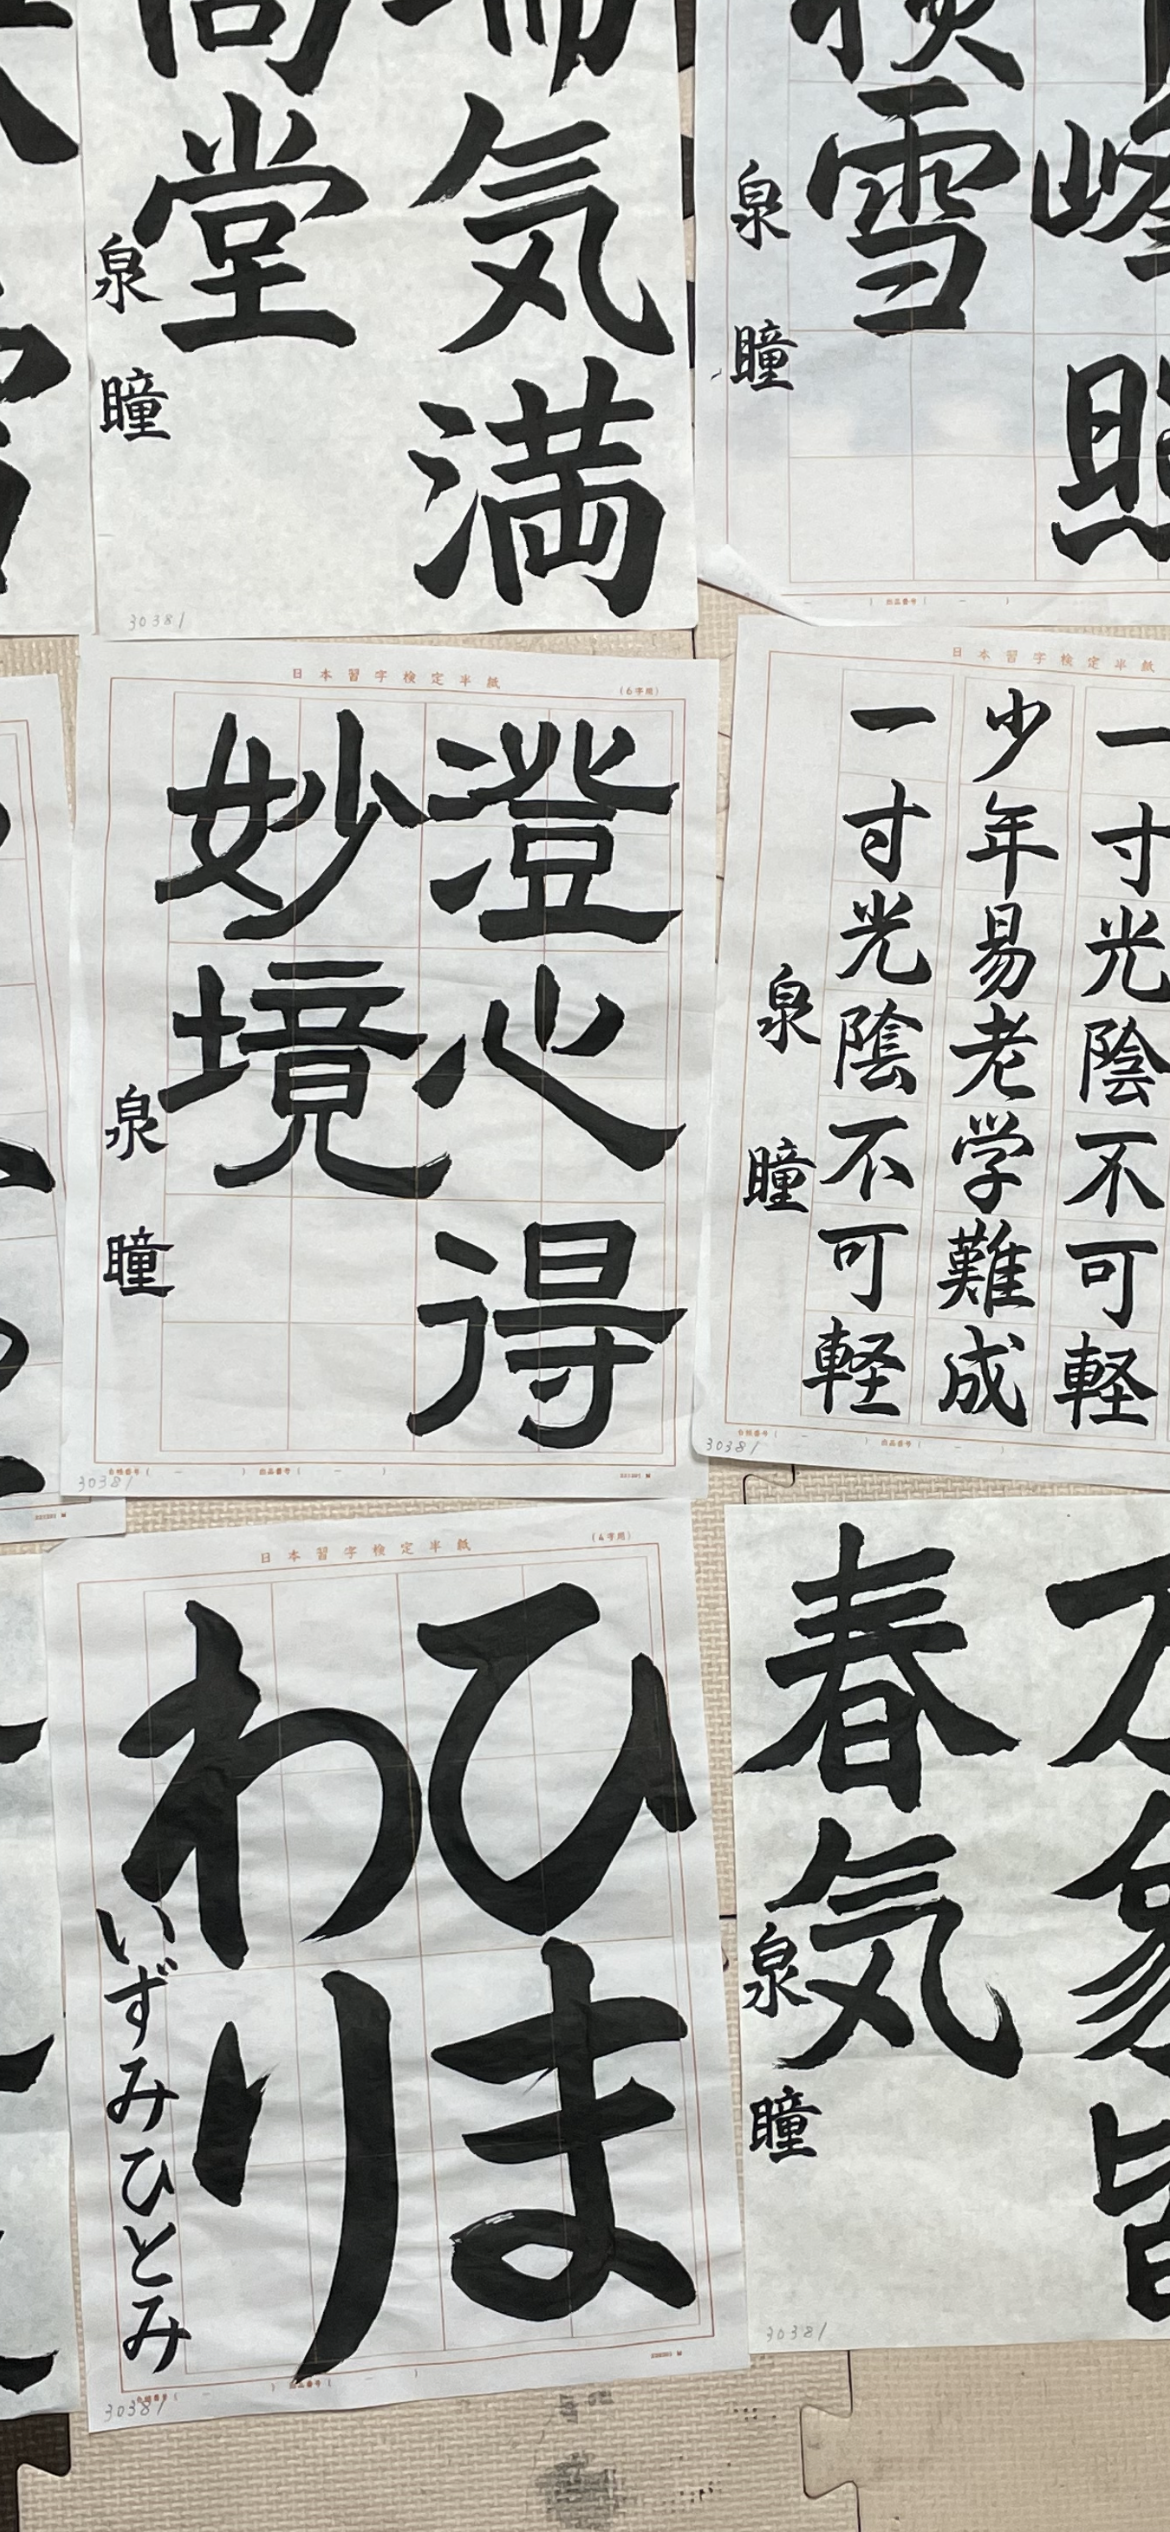 気満
堂
泉 瞳
30381
雪
泉 瞳
出品番号
日本習字検定半紙
(6字用)
澄心得
妙境
泉 瞳
30381
出品番号
日本習字検定半紙
一寸光陰不可軽
少年易老学難成
一寸光陰不可軽
泉 瞳
30381
出品番号
日本習字検定半紙
(4字用)
ひま
わり
いずみひとみ
30381
出品番号
春気
泉 瞳
30381